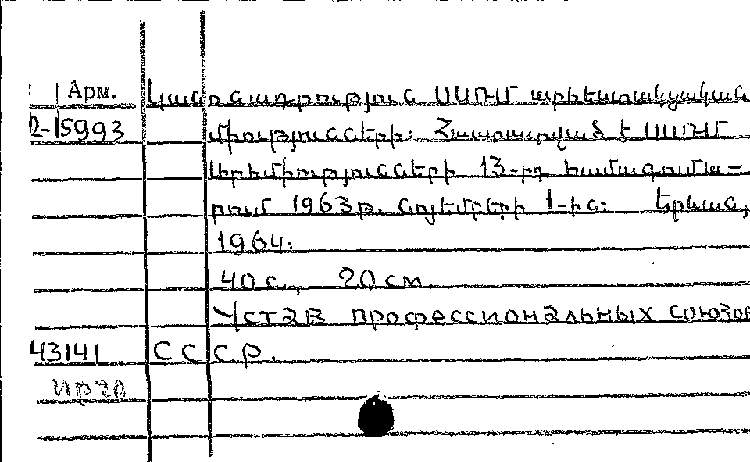 Арм. Կանոնադրություն ՍՍՌՄ արհեստակցական
2-15993 միությունների: Հաստատված է ՍՍՌՄ
արհմիությունների 13-րդ համագումա-
րում 1963թ. նոյեմբերի 1-ին: Երևան,
1964.
40 с., 20 см.
Устав профессиональных союзов
43141 СССР.